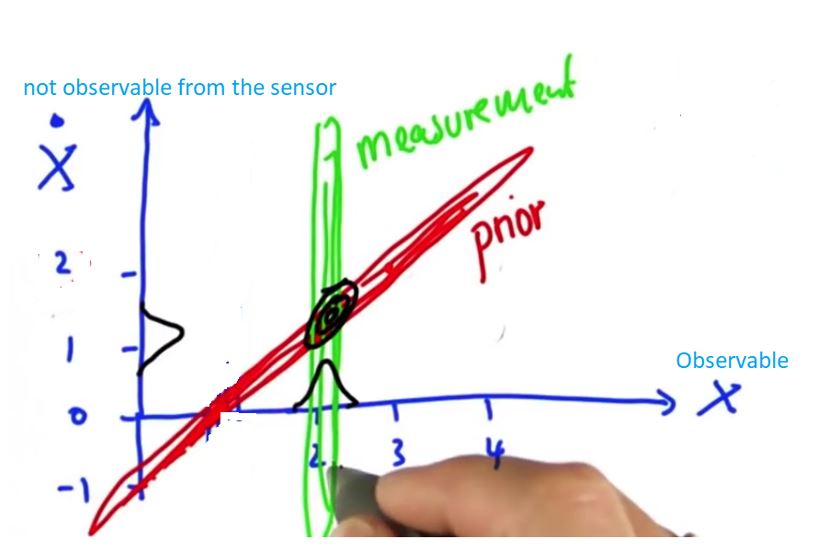 not observable from the sensor
measurement
Ẋ
prior
2
1
Observable
X
0
2
3
4
-1